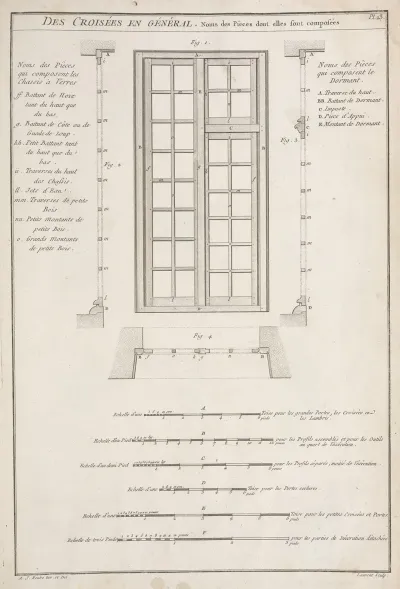 DES CROISÉES EN GÉNÉRAL, Noms des Pièces dont elles sont composées
Pl. 23.
Fig. 1.
Noms des Pièces
qui composent les
Chassis à Verres
ff. Battant de Noix
tant du haut que
du bas.
g. Battant de Côte ou de
Gueule de loup.
h.h. Petit Battant tant
du haut que du
bas.
ii. Traverse du haut
des Chassis.
ll. Jets d'Eau.
mm. Traverses de petits
Bois.
nn. Petits montants de
petits Bois.
o. Grands Montants
de petits Bois.
Fig. 2.
Noms des Pièces
qui composent le
Dormant.
A. Traverse du haut.
BB. Battant de Dormant.
C. Imposte
D. Pièce d'Appui.
E. Montant de Dormant.
Fig. 3.
Fig. 4.
A
Echelle d'une Toise pour les grandes Portes, les Croisées et les Lambris.
B
Echelle d'un Pied pour les Profils assemblés et pour les Outils au quart de l'exécution.
C
Echelle d'un demi Pied pour les Profils séparés, moitié de l'exécution.
D
Echelle d'une Toise pour les Portes cochères
E
Echelle d'une Toise pour les petites Croisées et Portes
F
Echelle de trois Pieds pour les parties de Décoration détachées
A. J. Roubo Inv. et Del.
Sculp.